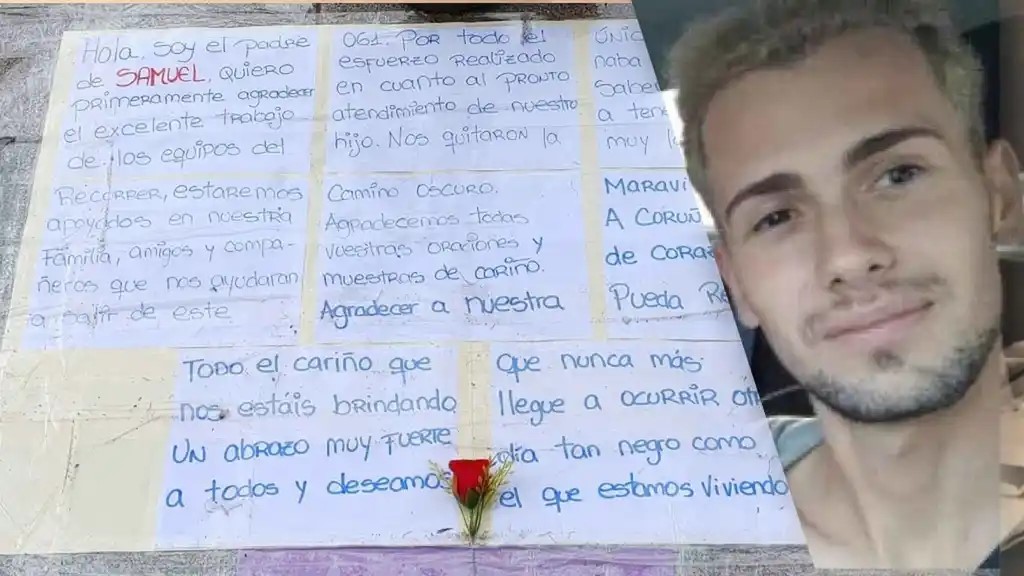 Hola, soy el padre
de SAMUEL, QUIERO
primeramente agradecer
el excelente trabajo
de los equipos del
061. POR todo el
esfuerzo Realizado
en cuanto al pronto
atendimiento de nuestro
hijo. Nos quitaron la
ÚNIC
naba
Sabe
a ten
muy
Recorrer, estaremos
apoyados en nuestra
Familia, amigos y compa-
ñeros que nos ayudaran
a salir de este
Camino oscuro.
Agradecemos todas
vuestras oraciones y
muestras de cariño.
Agradecer a nuestra
MARAVI
A CORUÑ
de CORA
Pueda Re
Todo el cariño que
nos estáis brindando
UN abrazo muy fuerte
a todos y deseamo
que nunca más
llegue a OCURRIR ot
día tan negro como
el que estamos viviendo